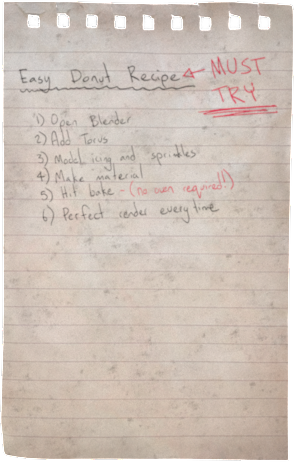 Easy Donut Recipe ← MUST
TRY
1) Open Blender
2) Add Torus
3) Model icing and sprinkles
4) Make material
5) Hit bake - (no oven required!!)
6) Perfect render every time